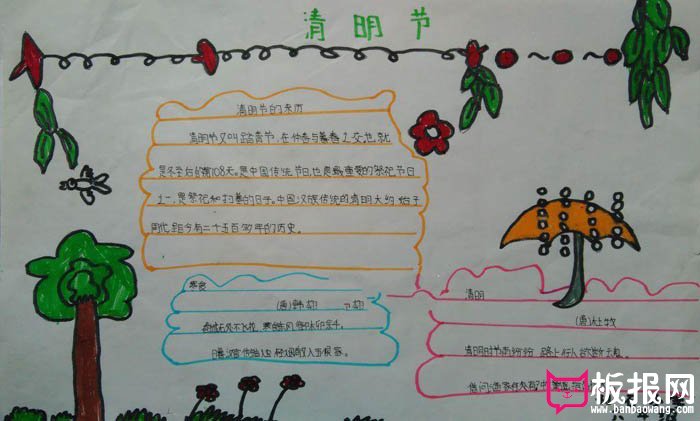 清明节
清明节的来历
清明节又叫踏青节,在仲春与暮春之交,也就
是冬至后的第108天。是中国传统节日,也是最重要的祭祀节日
之一,是祭祀和扫墓的日子。中国汉族传统的清明大约始于
周代,距今有二千五百多年的历史。
寒食
(唐)韩翃
春城无处不飞花,寒食东风御柳斜。
日暮汉宫传蜡烛,轻烟散入五侯家。
清明
(唐)杜牧
清明时节雨纷纷,路上行人欲断魂。
借问酒家何处有?牧童
板报网
www.banbaowang.com